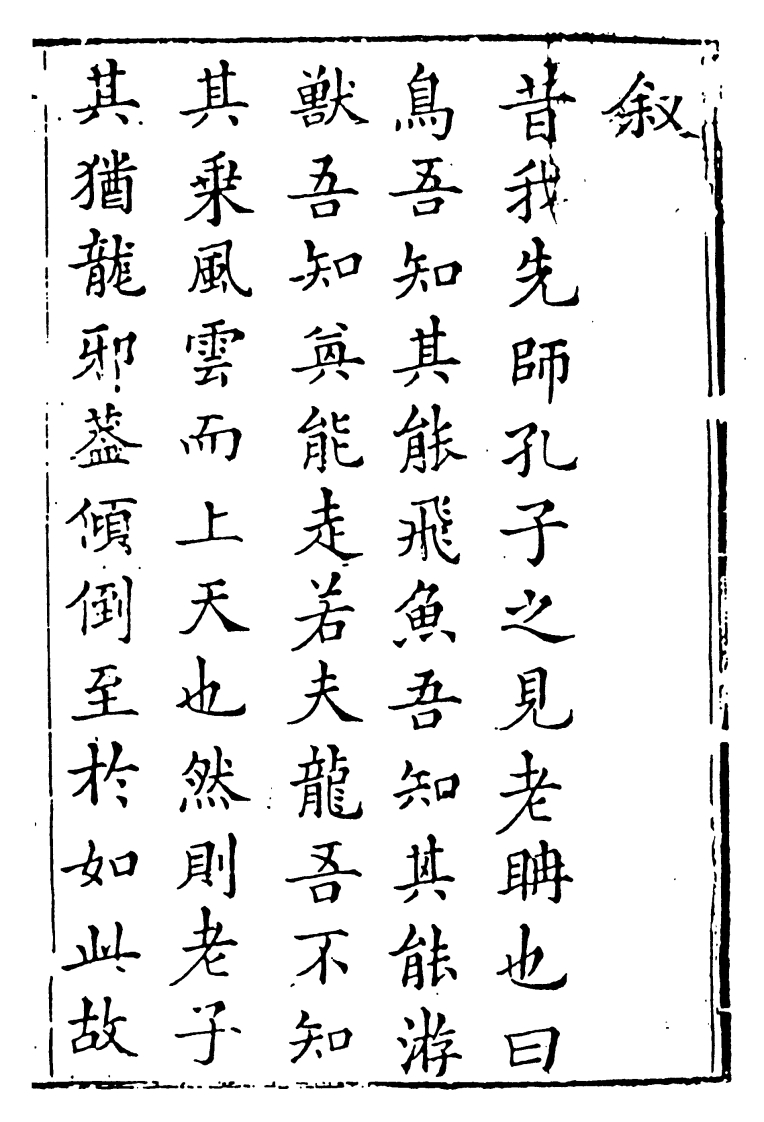 叙
昔我先師孔子之見老聃也曰
鳥吾知其能飛魚吾知其能游
獸吾知其能走若夫龍吾不知
其乗風雲而上天也然則老子
其猶龍邪葢傾倒至於如此故